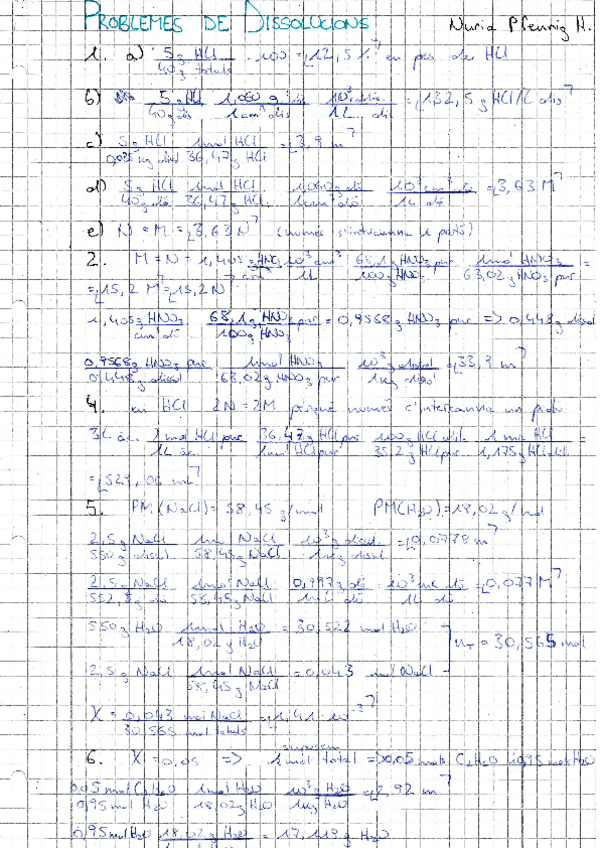 PROBLEMES DE DISSOLUCIONS Nuria Pfennig H.
1. a) 5g HCl / 40g totals · 100 = 12,5% en pes de HCl
b) 5g HCl / 40g dis 1,060 g dis / 1cm³ dis 10³ cm³ dis / 1L dis = 132,5 g HCl/L dis
c) 5g HCl / 0,035 kg disol 1mol HCl / 36,47g HCl = 3,9 m
d) 5g HCl / 40g dis 1mol HCl / 36,47g HCl 1,060g dis / 1cm³ dis 10³ cm³ dis / 1L dis = 3,63 M
e) N = M = 3,63 N (només s'intercanvia 1 protó)
2. M = N = 1,405 g HNO₃ / cm³ 10³ cm³ / 1L 68,1g HNO₃ pur / 100g HNO₃ 1mol HNO₃ / 63,02g HNO₃ pur =
= 15,2 M = 15,2 N
1,405g HNO₃ / cm³ dis 68,1g HNO₃ pur / 100g HNO₃ = 0,9568g HNO₃ pur => 0,448g disol
0,9568g HNO₃ pur / 0,448g disol 1mol HNO₃ / 63,02g HNO₃ pur 10³g disol / 1kg disol = 33,9 m
4. en HCl 2N = 2M perquè només s'intercanvia un protó
3L 2mol HCl pur / 1L 36,47g HCl pur / 1mol HCl pur 100g HCl dil. / 35,2g HCl pur 1 mL HCl / 1,175g HCl dil. =
= 529,06 mL
5. PM (NaCl) = 58,45 g/mol PM(H₂O) = 18,02 g/mol
2,5g NaCl / 550g disol 1m NaCl / 58,45g NaCl 10³g disol / 1kg disol = 0,0778 m
2,5g NaCl / 552,5g dis 1mol NaCl / 58,45g NaCl 0,997g dis / 1mL dis 10³ mL dis / 1L dis = 0,077 M
550g H₂O 1mol H₂O / 18,02g H₂O = 30,522 mol H₂O
nT = 30,565 mol
2,5g NaCl 1mol NaCl / 58,45g NaCl = 0,043 mol NaCl
X = 0,043 mol NaCl / 30,565 mol totals = 1,41 · 10⁻³
6. X = 0,05 => 1mol total => 0,05 mols C₂H₆O i 0,95 mols H₂O
0,05 mol C₂H₆O / 0,95 mol H₂O 1mol H₂O / 18,02g H₂O 10³g H₂O / 1kg H₂O = 2,92 m
0,95 mol H₂O 18,02g H₂O = 17,119g H₂O